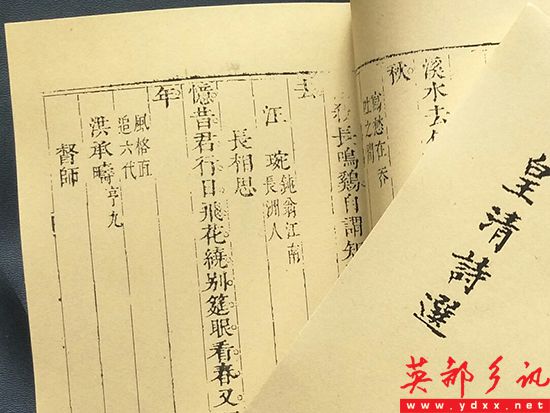 皇清詩選
溪水去
秋
寫愁在吞
吐之間
長鳴鷄自謂知
汪琬 鈍翁江南
長洲人
長相思
憶昔君行日飛花繞別筵眠看春又
年
風格直
追六代
洪承疇 亨九
督師
英都乡讯
www.ydxx.net